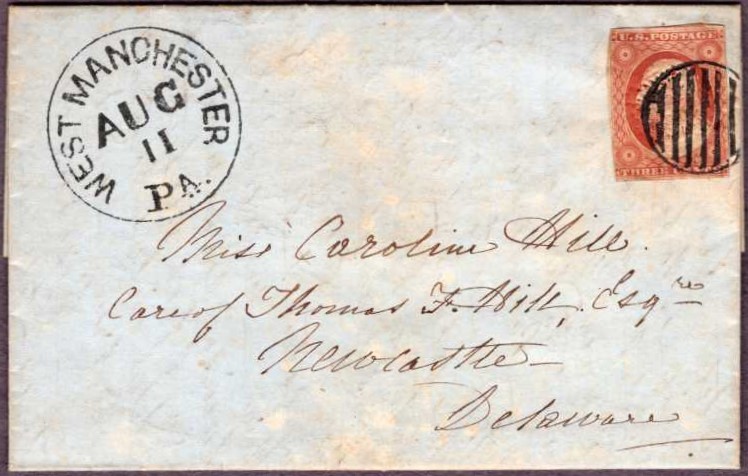 WEST MANCHESTER
AUG
11
PA.
U.S. POSTAGE
THREE
Miss Caroline Hill.
Care of Thomas F. Hill, Esqre
Newcastle
Delaware